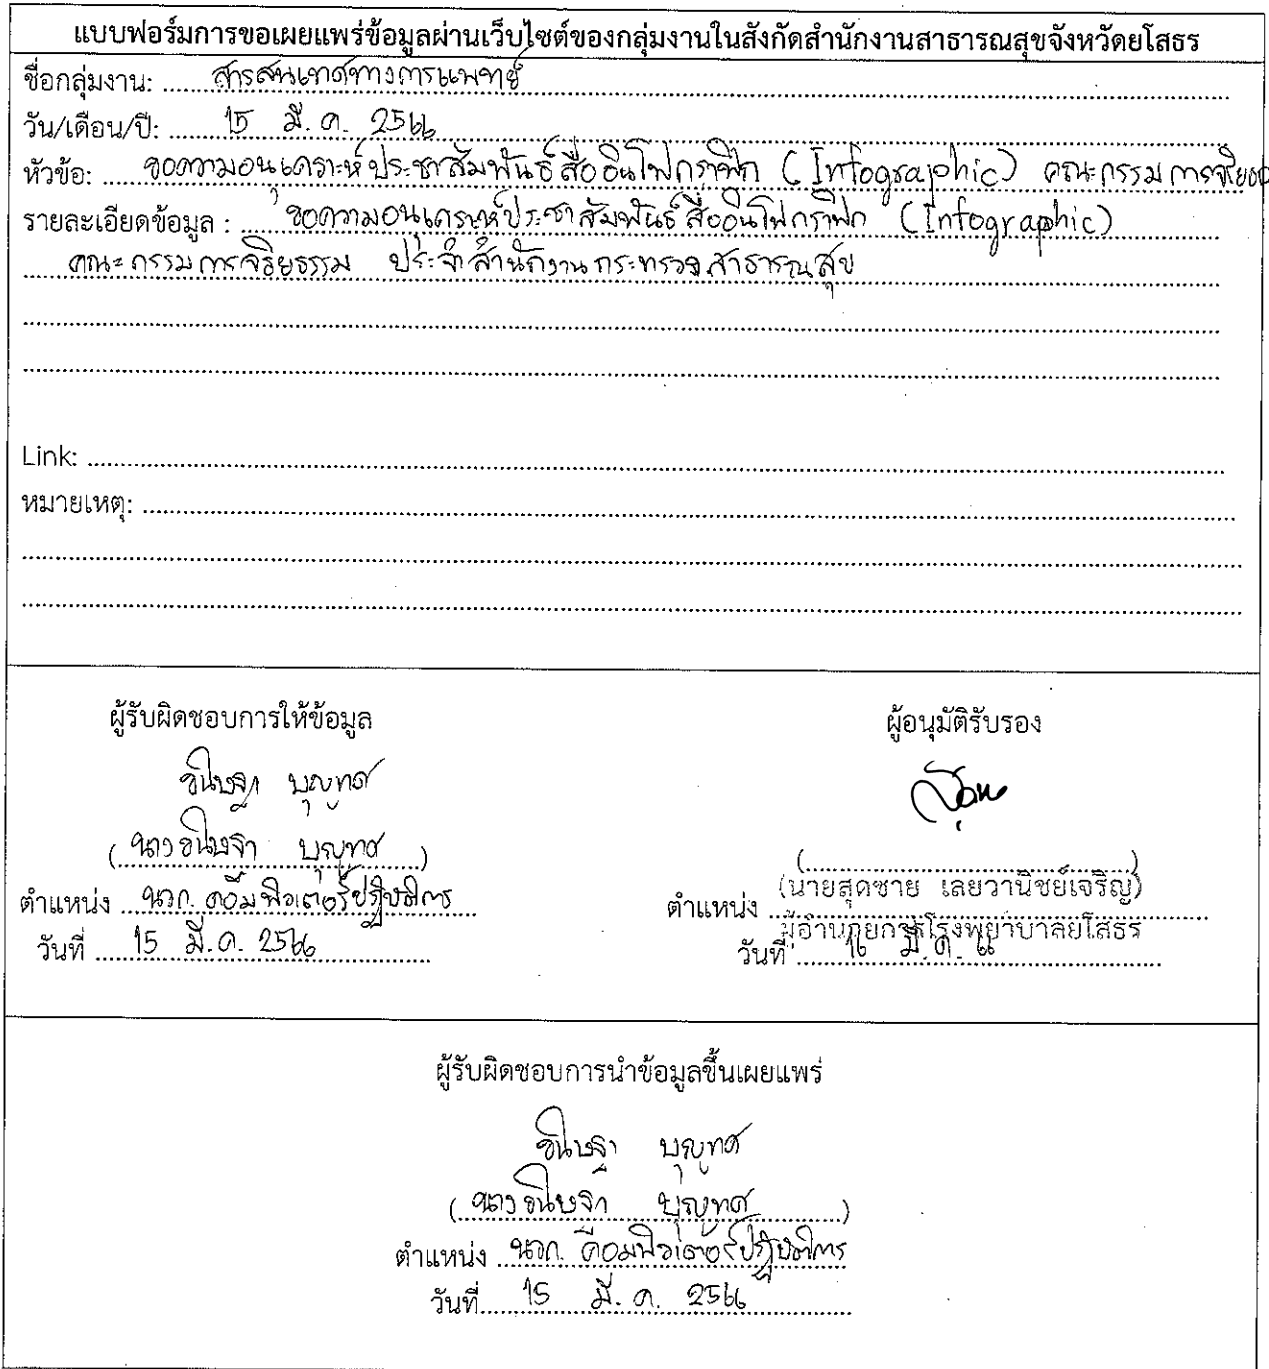 แบบฟอร์มการขอเผยแพร่ข้อมูลผ่านเว็บไซต์ของกลุ่มงานในสังกัดสำนักงานสาธารณสุขจังหวัดยโสธร
ชื่อกลุ่มงาน: สารสนเทศทางการแพทย์
วัน/เดือน/ปี: 15 มี.ค. 2566
หัวข้อ: ขอความอนุเคราะห์ประชาสัมพันธ์สื่ออินโฟกราฟิก (Infographic) คณะกรรมการจริยธ
รายละเอียดข้อมูล : ขอความอนุเคราะห์ประชาสัมพันธ์สื่ออินโฟกราฟิก (Infographic)
คณะกรรมการจริยธรรม ประจำสำนักงานกระทรวงสาธารณสุข
Link:
หมายเหตุ:
ผู้รับผิดชอบการให้ข้อมูล
ขนิษฐา บุญทศ
(นางขนิษฐา บุญทศ)
ตำแหน่ง นวก. คอมพิวเตอร์ปฏิบัติการ
วันที่ 15 มี.ค. 2566
ผู้อนุมัติรับรอง
(นายสุดชาย เลยวานิชย์เจริญ)
ตำแหน่ง ผู้อำนวยการโรงพยาบาลยโสธร
วันที่ 16 มี.ค. 66
ผู้รับผิดชอบการนำข้อมูลขึ้นเผยแพร่
ขนิษฐา บุญทศ
(นางขนิษฐา บุญทศ)
ตำแหน่ง นวก. คอมพิวเตอร์ปฏิบัติการ
วันที่ 15 มี.ค. 2566